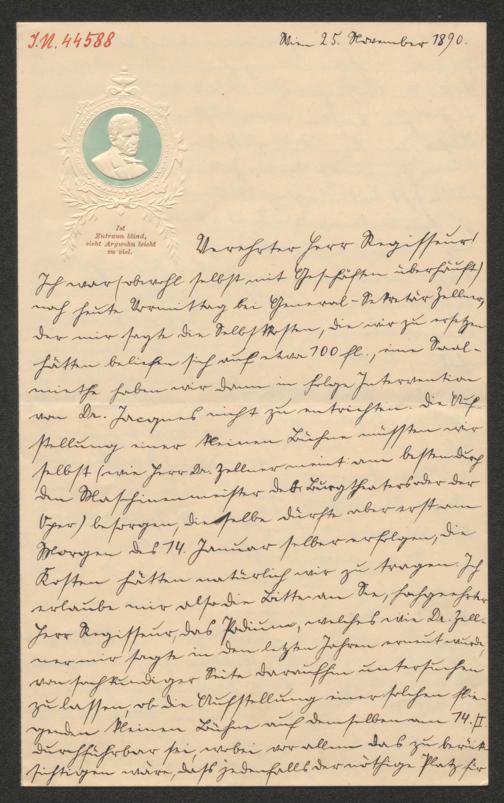 I.N. 44588
Wien 25. November 1890.
Ist
Zutraun blind,
sieht Argwohn leicht
zu viel.
Verehrter Herr Regisseur!
Ich war (obwohl selbst mit Geschäften überhäuft)
noch heute Vormittag bei General-Sekretär Zellner,
der mir sagte die Selbstkosten, die wir zu ersetzen
hätten beliefen sich auf etwa 100 fl., eine Saal-
miethe haben wir dann in folge Intervention
von Dr. Jacques nicht zu entrichten. Die Auf-
stellung einer kleinen Bühne müssten wir
selbst (wie Herr Dr. Zellner meint am besten durch
den Maschinenmeister des Burgtheaters oder der
Oper) besorgen, dieselbe dürfte aber erst am
Morgen des 14. Januar selber erfolgen, die
Kosten hätten natürlich wir zu tragen. Ich
erlaube mir also die Bitte an Sie, hochgeehrter
Herr Regisseur, das Podium, welches wie Dr. Zell-
ner mir sagte in den letzten Jahren erneut wurde,
von sachkundiger Seite daraufhin untersuchen
zu lassen, ob die Aufstellung einer solchen
kleinen Bühne auf demselben am 14. I
durchführbar sei, wobei vor allem das zu berück-
sichtigen wäre, dass jedenfalls der nöthige Platz für